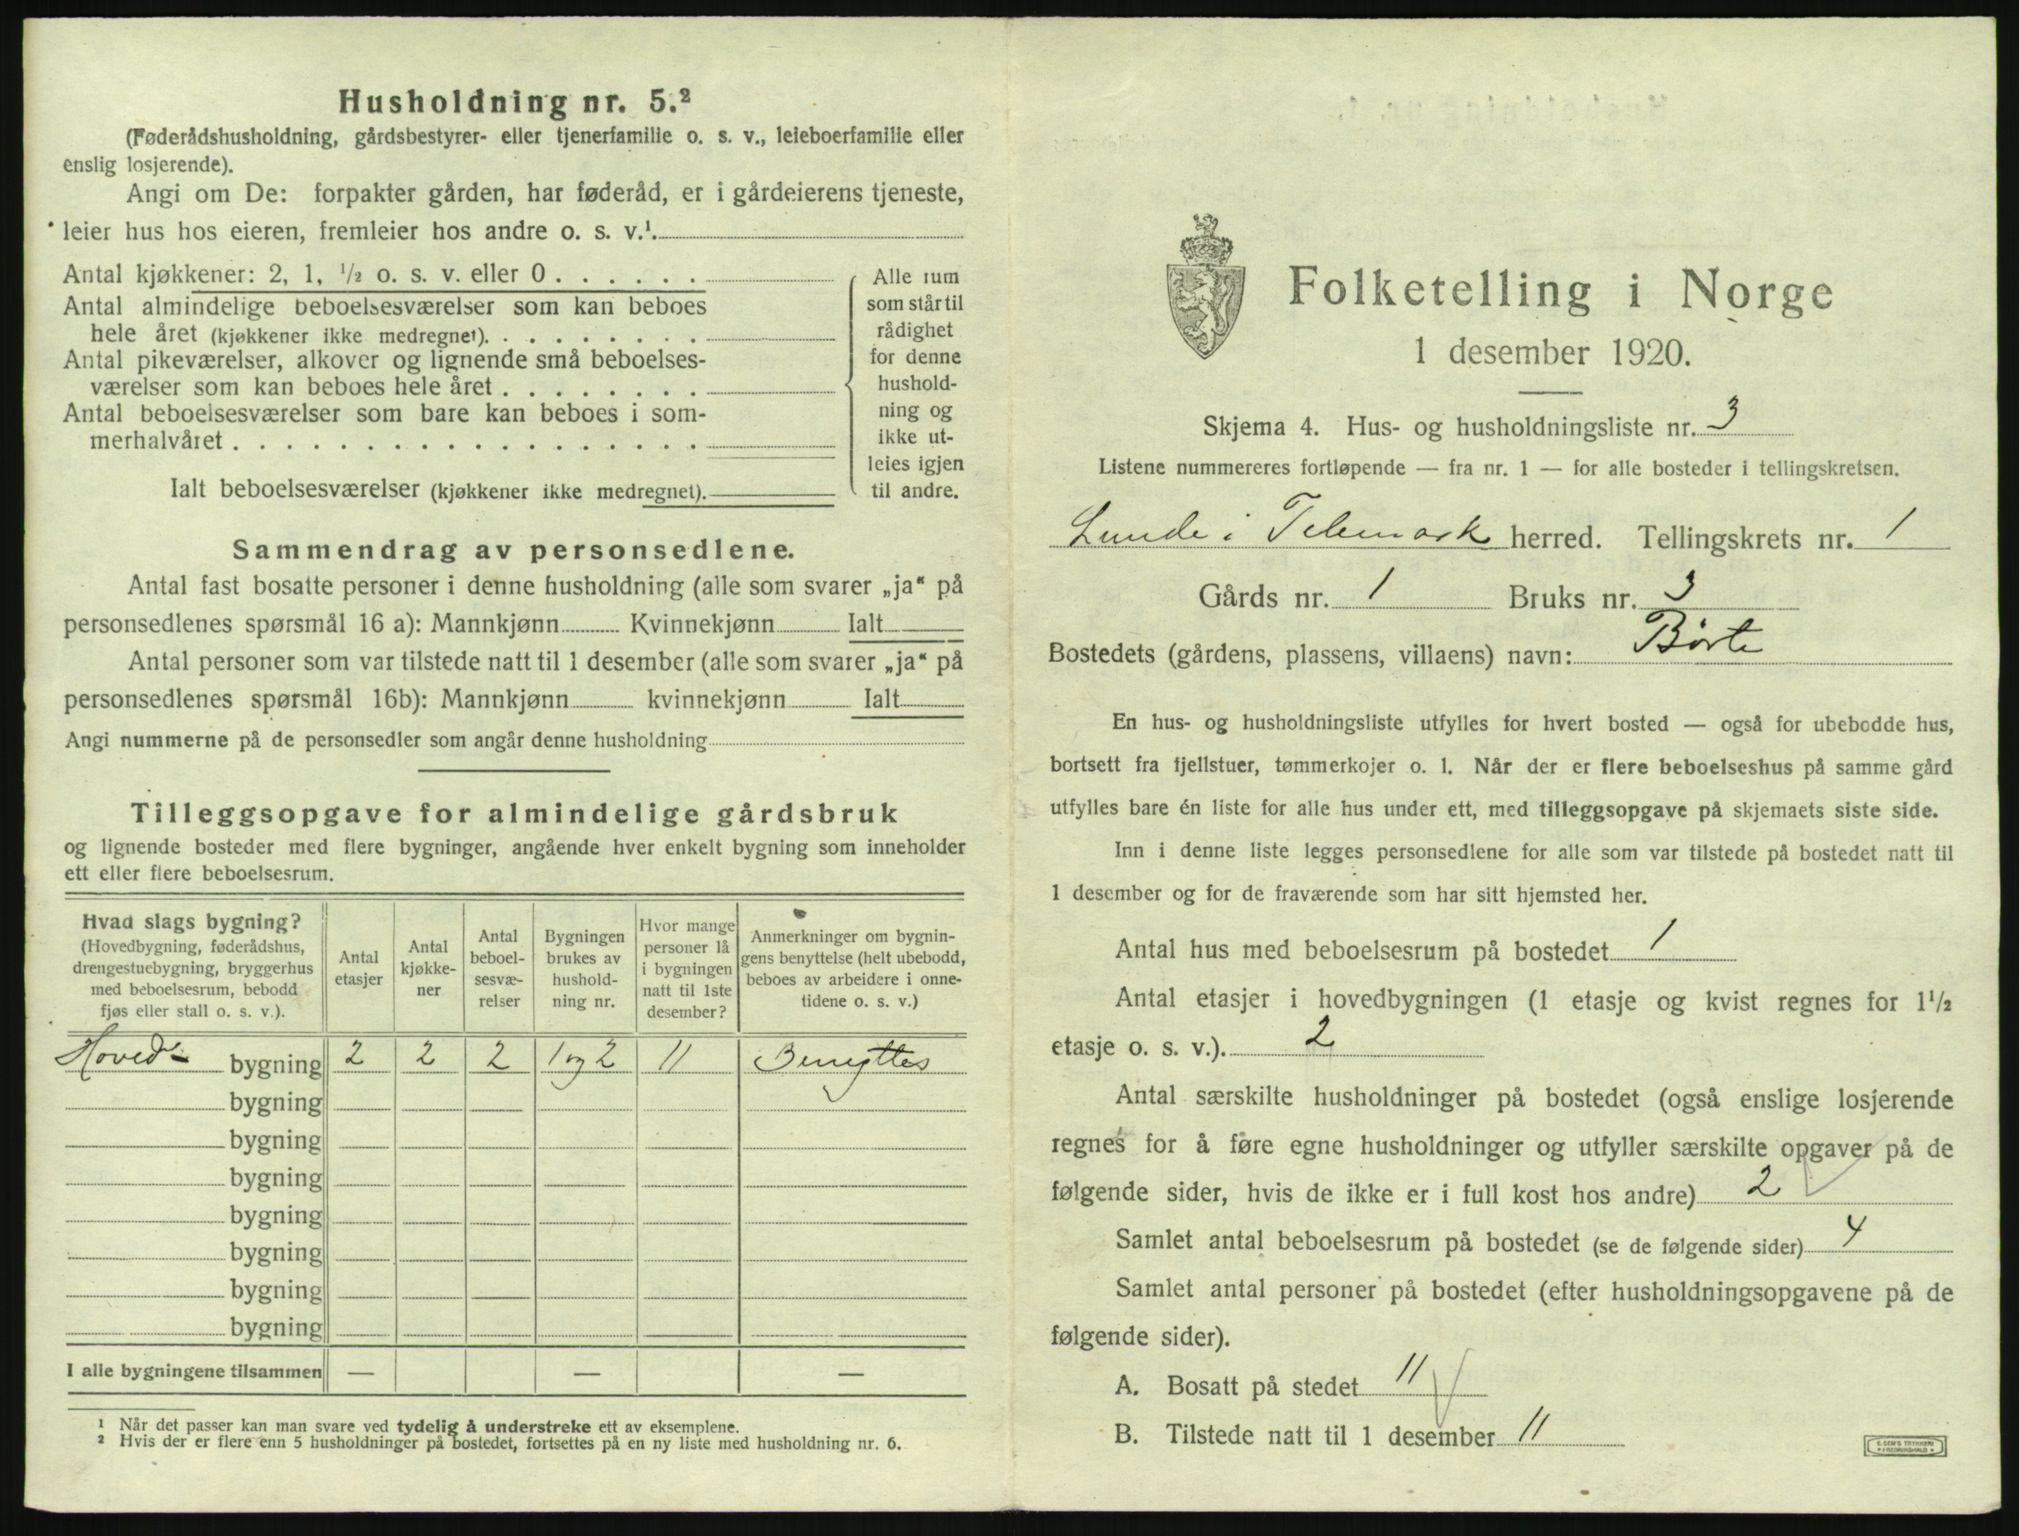 Husholdning nr. 5.²
(Føderådshusholdning, gårdsbestyrer- eller tjenerfamilie o. s. v., leieboerfamilie eller
enslig losjerende).
Angi om De: forpakter gården, har føderåd, er i gårdeierens tjeneste,
leier hus hos eieren, fremleier hos andre o. s. v.¹.
Antal kjøkkener: 2, 1, ½ o. s. v. eller 0 . . . . . .
Antal almindelige beboelsesværelser som kan beboes
hele året (kjøkkener ikke medregnet). . . . . . . . .
Antal pikeværelser, alkover og lignende små beboelses-
værelser som kan beboes hele året . . . . . . . .
Antal beboelsesværelser som bare kan beboes i som-
merhalvåret . . . . . . . . . . . . . . . . . .
Ialt beboelsesværelser (kjøkkener ikke medregnet).
Alle rum
som står til
rådighet
for denne
hushold-
ning og
ikke ut-
leies igjen
til andre.
Sammendrag av personsedlene.
Antal fast bosatte personer i denne husholdning (alle som svarer „ja“ på
personsedlenes spørsmål 16 a): Mannkjønn Kvinnekjønn Ialt
Antal personer som var tilstede natt til 1 desember (alle som svarer „ja“ på
personsedlenes spørsmål 16b): Mannkjønn kvinnekjønn Ialt
Angi nummerne på de personsedler som angår denne husholdning
Tilleggsopgave for almindelige gårdsbruk
og lignende bosteder med flere bygninger, angående hver enkelt bygning som inneholder
ett eller flere beboelsesrum.
Hvad slags bygning?
(Hovedbygning, føderådshus,
drengestuebygning, bryggerhus
med beboelsesrum, bebodd
fjøs eller stall o. s. v.).
Antal
etasjer
Antal
kjøkke-
ner
Antal
beboel-
sesvæ-
relser
Bygningen
brukes av
hushold-
ning nr.
Hvor mange
personer lå
i bygningen
natt til 1ste
desember?
Anmerkninger om bygnin-
gens benyttelse (helt ubebodd,
beboes av arbeidere i onne-
tidene o. s. v.)
Hoved- bygning 2 2 2 1 og 2 11 Benyttes
bygning
bygning
bygning
bygning
bygning
bygning
bygning
I alle bygningene tilsammen — — —
¹ Når det passer kan man svare ved tydelig å understreke ett av eksemplene.
² Hvis der er flere enn 5 husholdninger på bostedet, fortsettes på en ny liste med husholdning nr. 6.
Folketelling i Norge
1 desember 1920.
Skjema 4. Hus- og husholdningsliste nr. 3
Listene nummereres fortløpende — fra nr. 1 — for alle bosteder i tellingskretsen.
Lunde i Telemark herred. Tellingskrets nr. 1
Gårds nr. 1 Bruks nr. 3
Bostedets (gårdens, plassens, villaens) navn: Børte
En hus- og husholdningsliste utfylles for hvert bosted — også for ubebodde hus,
bortsett fra fjellstuer, tømmerkojer o. l. Når der er flere beboelseshus på samme gård
utfylles bare én liste for alle hus under ett, med tilleggsopgave på skjemaets siste side.
Inn i denne liste legges personsedlene for alle som var tilstede på bostedet natt til
1 desember og for de fraværende som har sitt hjemsted her.
Antal hus med beboelsesrum på bostedet 1
Antal etasjer i hovedbygningen (1 etasje og kvist regnes for 1½
etasje o. s. v.). 2
Antal særskilte husholdninger på bostedet (også enslige losjerende
regnes for å føre egne husholdninger og utfyller særskilte opgaver på de
følgende sider, hvis de ikke er i full kost hos andre) 2
Samlet antal beboelsesrum på bostedet (se de følgende sider) 4
Samlet antal personer på bostedet (efter husholdningsopgavene på de
følgende sider).
A. Bosatt på stedet 11
B. Tilstede natt til 1 desember 11